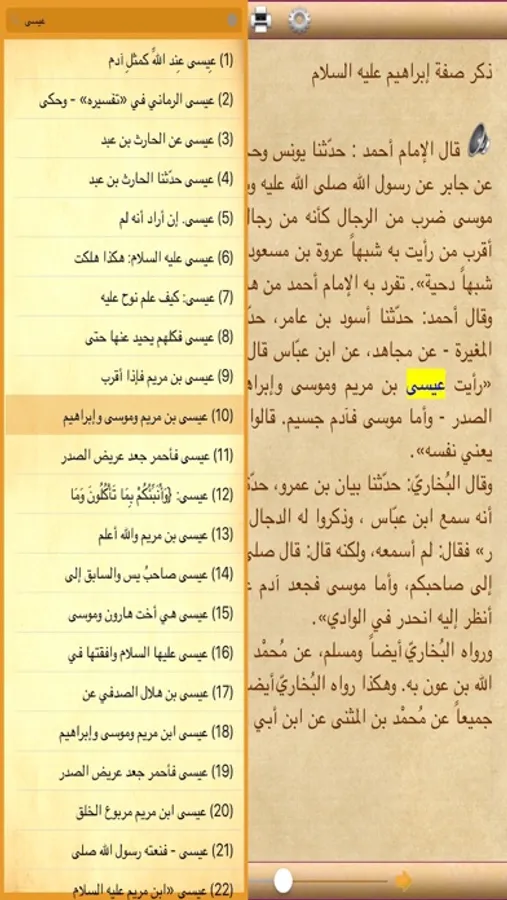 عيسى
(1) عيسى عند اللهِّ كمثلِ آدم
(2) عيسى الرماني في «تفسيره» - وحكى
(3) عيسى عن الحارث بن عبد
(4) عيسى حدّثنا الحارث بن عبد
(5) عيسى. إن أراد أنه لم
(6) عيسى عليه السلام: هكذا هلكت
(7) عيسى: كيف علم نوح عليه
(8) عيسى فكلهم يحيد عنها حتى
(9) عيسى بن مريم فإذا أقرب
(10) عيسى بن مريم وموسى وإبراهيم
(11) عيسى فأحمر جعد عريض الصدر
(12) عيسى: {وَأُنَبِّئُكُمْ بِمَا تَأْكُلُونَ وَمَا
(13) عيسى بن مريم والله أعلم
(14) عيسى صاحبُ يس والسابق إلى
(15) عيسى هي أخت هارون وموسى
(16) عيسى عليها السلام وافقتها في
(17) عيسى بن هلال الصدفي عن
(18) عيسى ابن مريم وموسى وإبراهيم
(19) عيسى فأحمر جعد عريض الصدر
(20) عيسى ابن مريم مربوع الخلق
(21) عيسى - فنعته رسول الله صلى
(22) عيسى «ابن مريم عليه السلام
ذكر صفة إبراهيم عليه السلام
قال الإمام أحمد : حدّثنا يونس وحـ
عن جابر عن رسول الله صلى الله عليه و
موسى ضرب من الرجال كأنه من رجال
أقرب من رأيت به شبهاً عروة بن مسعود
شبهاً دحية». تفرد به الإمام أحمد من هـ
وقال أحمد: حدّثنا أسود بن عامر، حدّ
المغيرة - عن مجاهد، عن ابن عبّاس قال
«رأيت عيسى بن مريم وموسى وإبراهـ
الصدر - وأما موسى فآدم جسيم. قالوا
يعني نفسه».
وقال البُخاريّ: حدّثنا بيان بن عمرو، حدّث
أنه سمع ابن عبّاس ، وذكروا له الدجال
ر» فقال: لم أسمعه، ولكنه قال: قال صلى
إلى صاحبكم، وأما موسى فجعد آدم ع
أنظر إليه انحدر في الوادي».
ورواه البُخاريّ أيضاً ومسلم، عن مُحمّد
الله بن عون به. وهكذا رواه البُخاريّ أيض
جميعاً عن مُحمّد بن المثنى عن ابن أبي